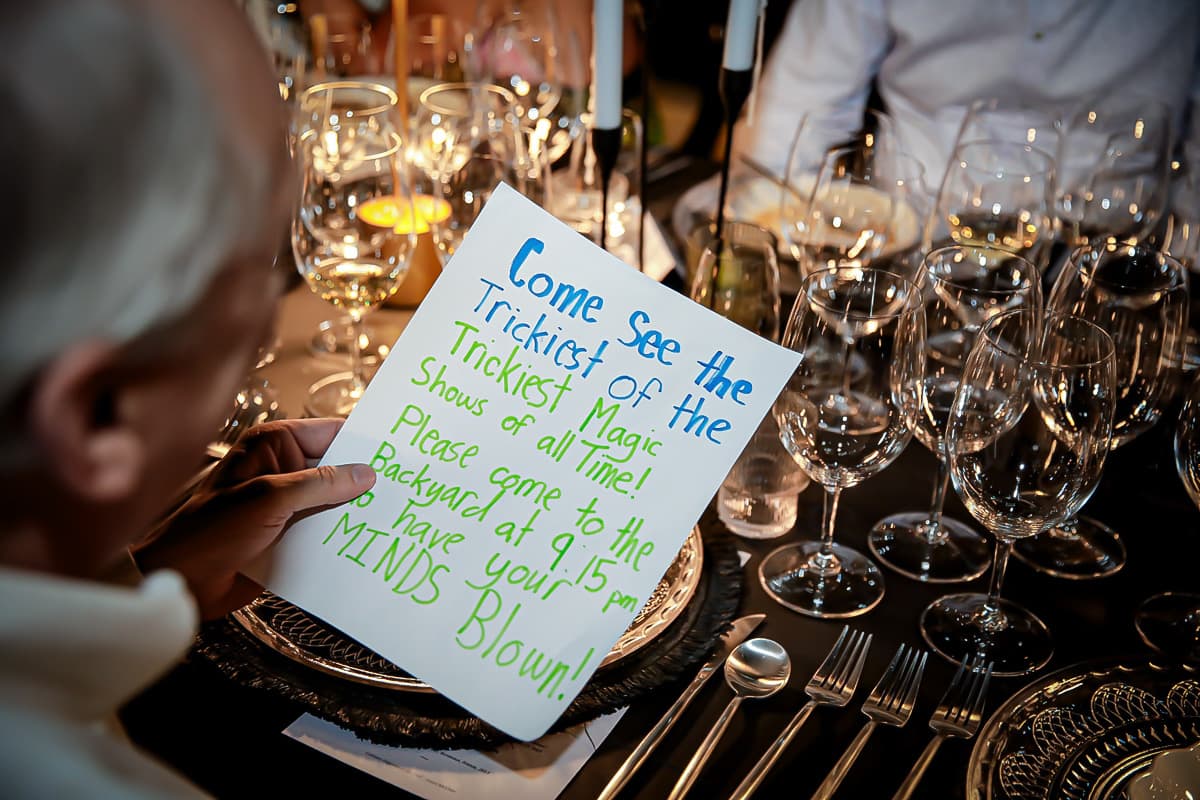 Come See the
Trickiest of the
Trickiest Magic
Shows of all Time!
Please come to the
Backyard at 9:15 pm
to have your
MINDS Blown!